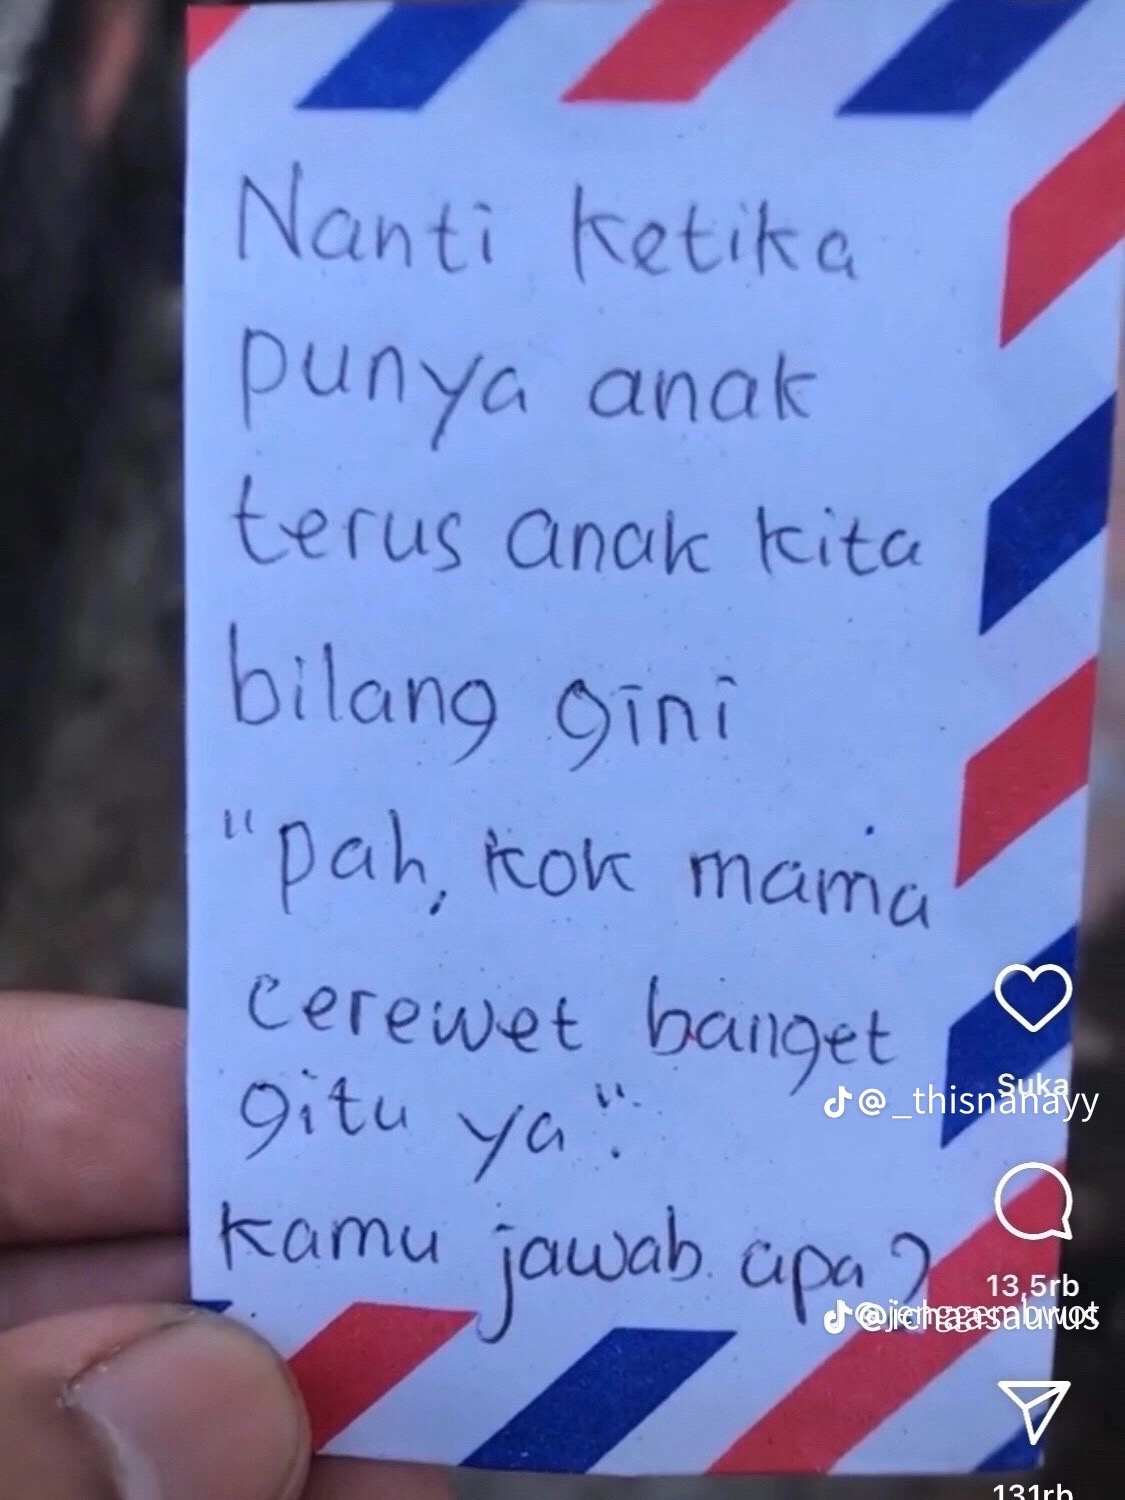 Nanti ketika
punya anak
terus anak kita
bilang gini
"Pah, kok mama
cerewet banget
gitu ya".
Kamu jawab apa?
Suka
@_thisnanayy
13,5rb
@ichaasaurus
131rb